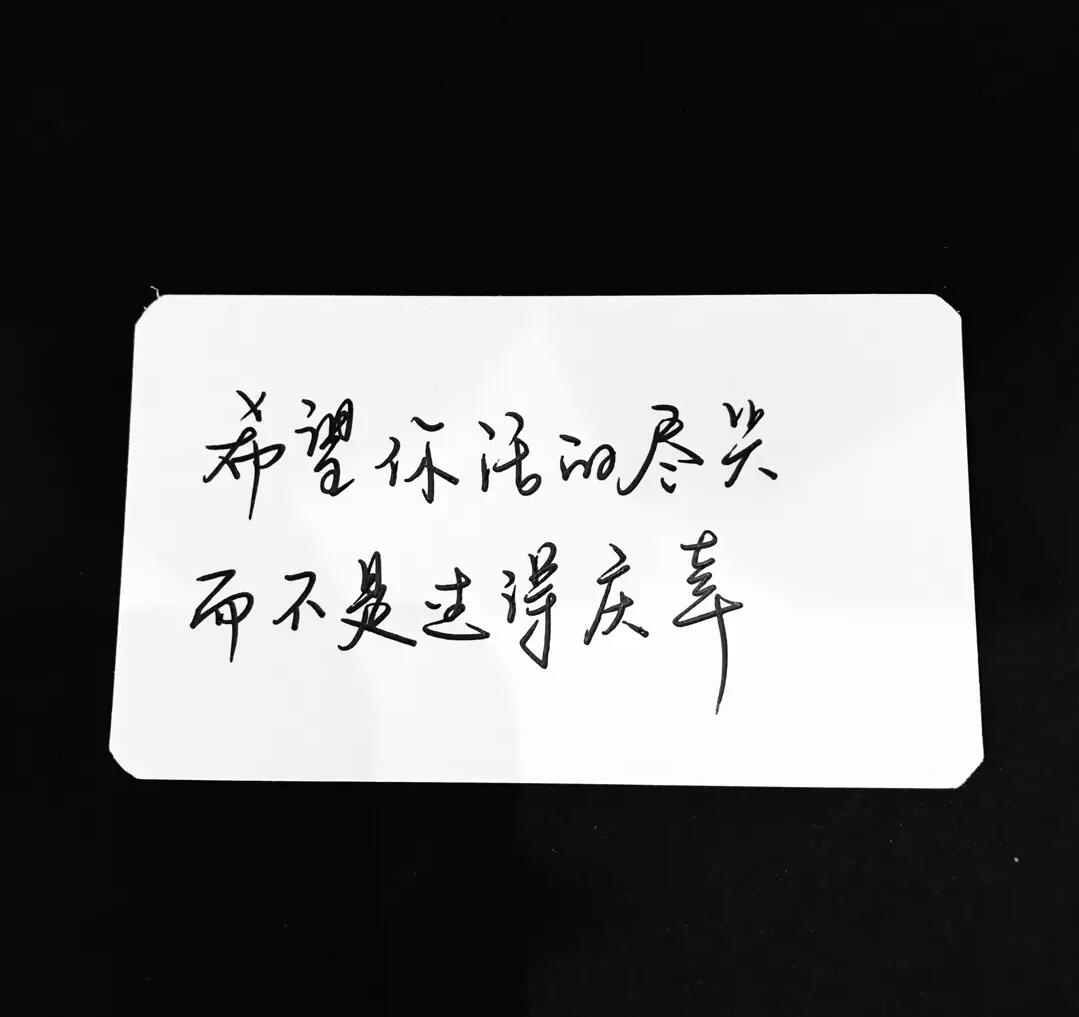 希望你活的尽兴
而不是过得庆幸